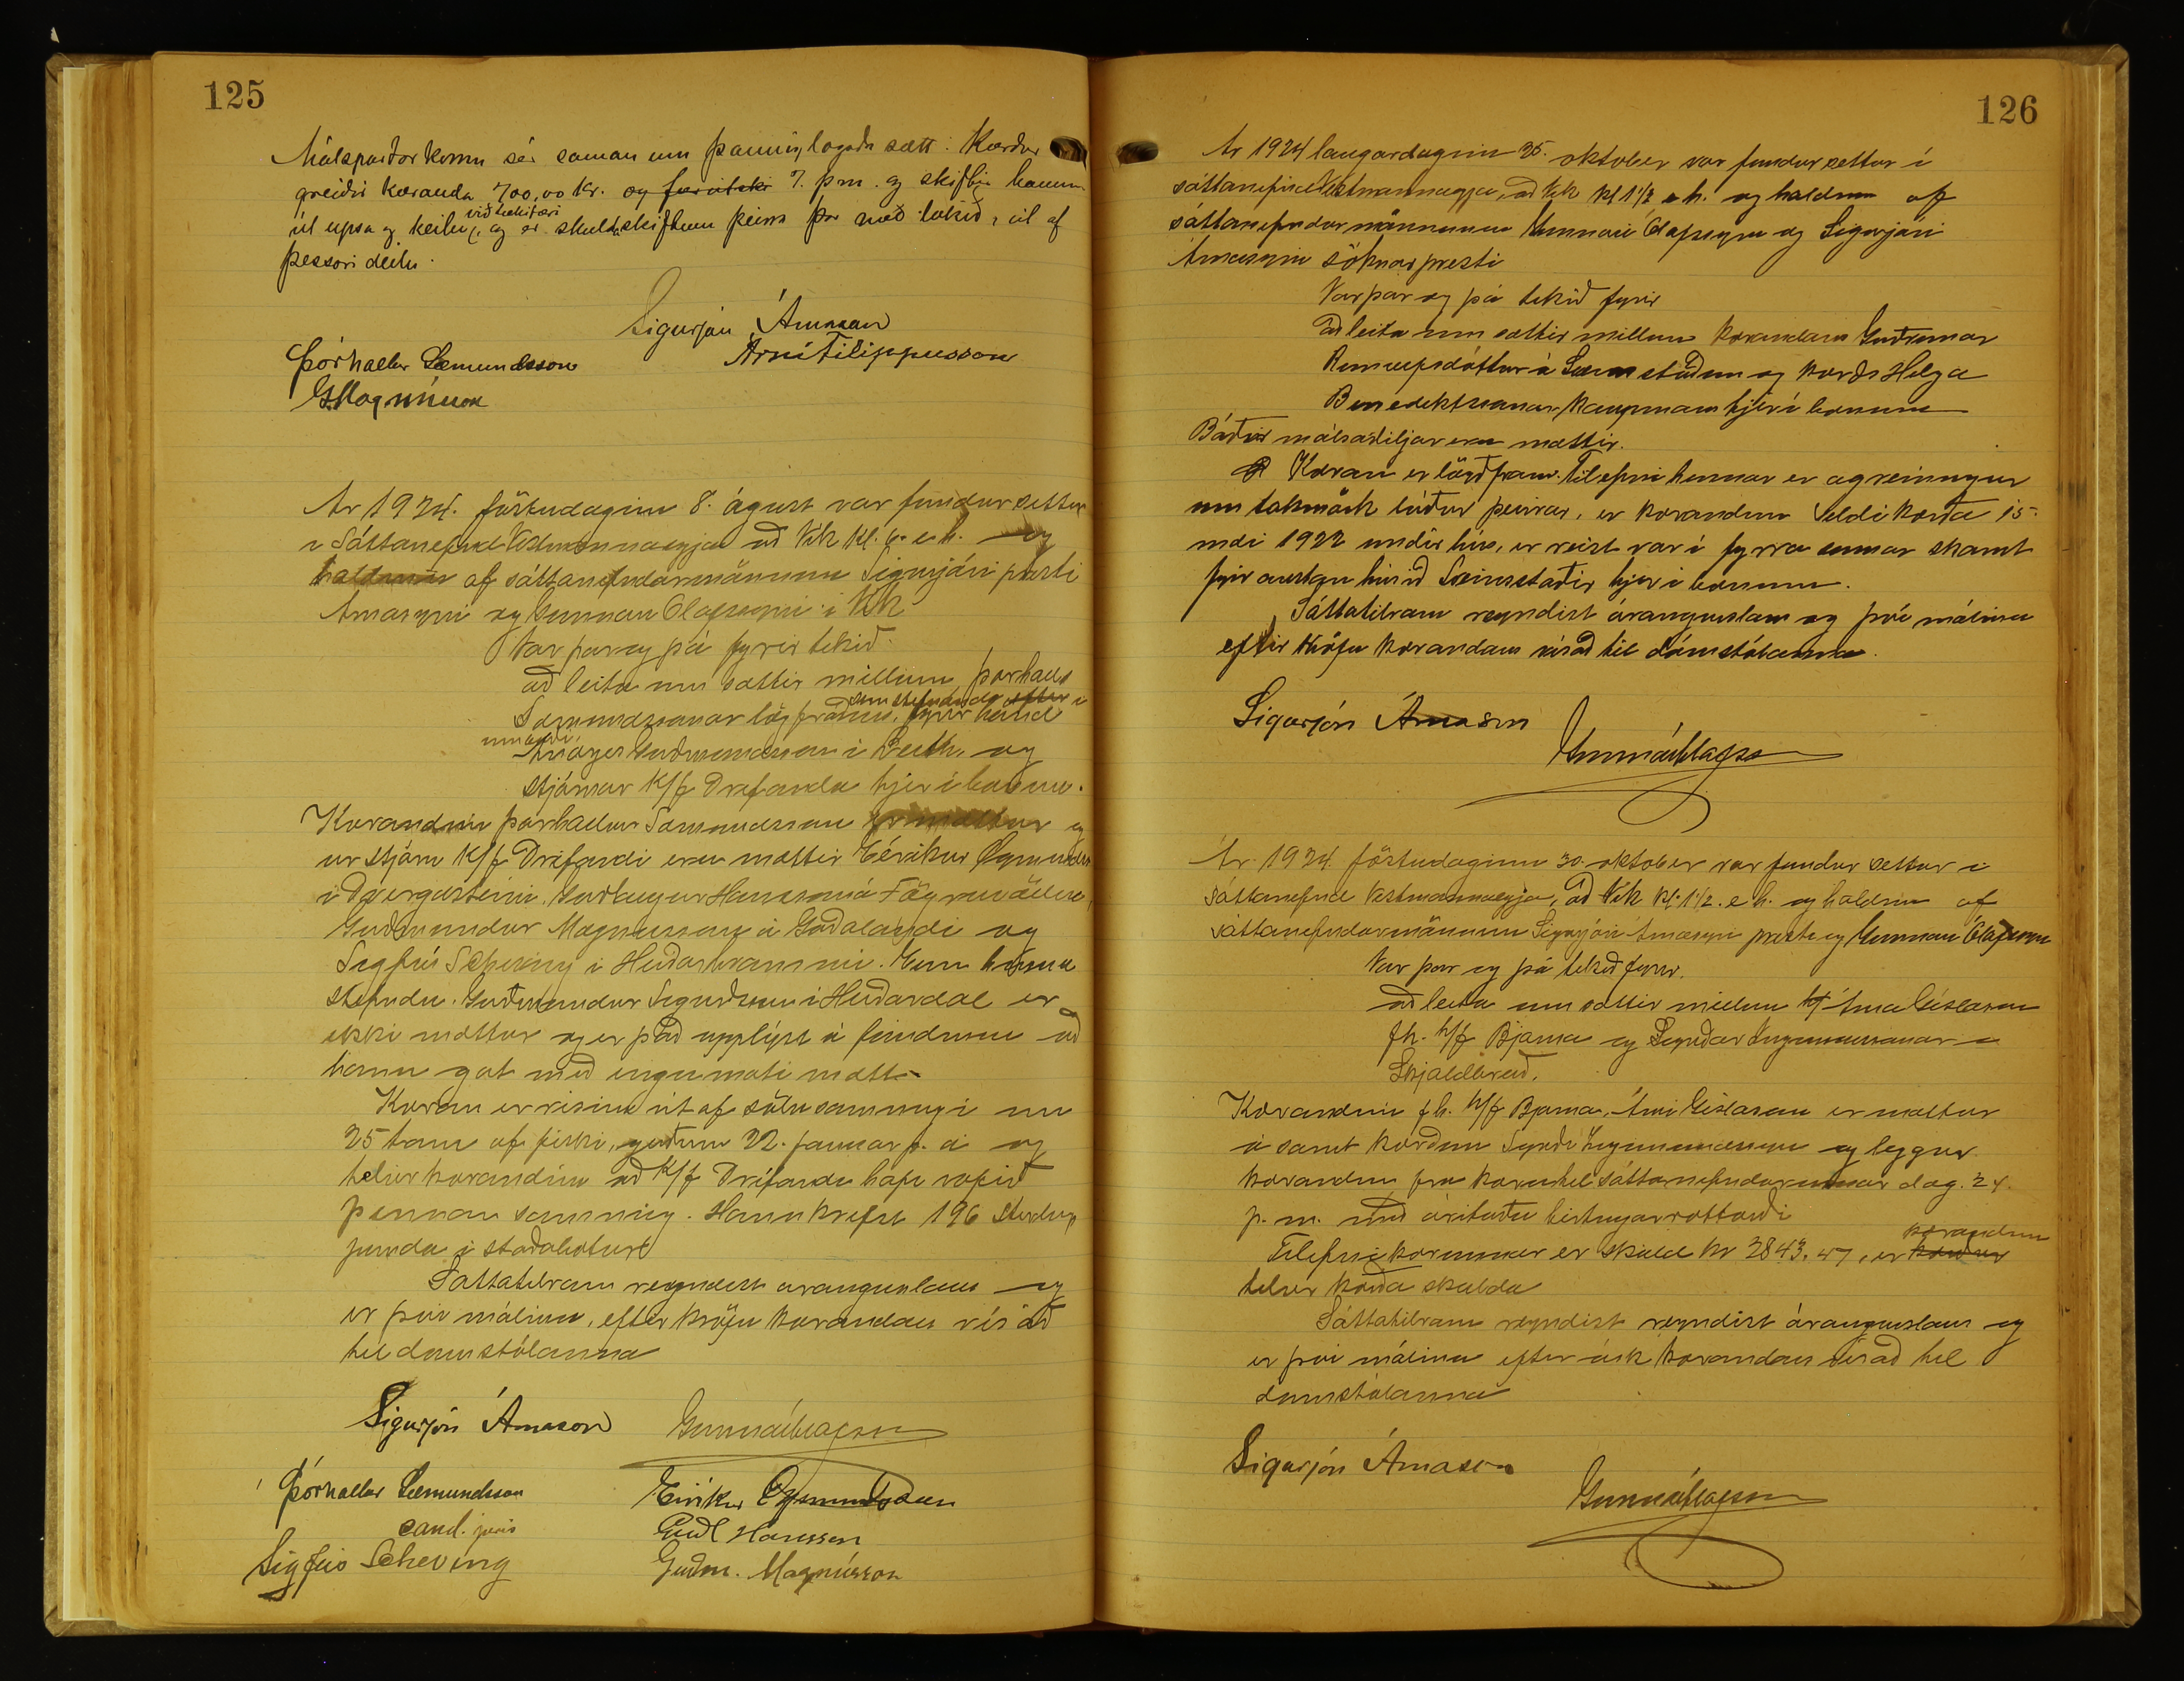 125
Málspartar komu sér saman um þannig lagaða sætt: Kærður
greiði kæranda 700,00 kr. og 7. þ.m. og skifti honum
út upsa og keilu, við tækifæri og er skuldaskiftum þeirra þar með lokið, út af
þessari deilu.
Sigurjón Árnason
Árni Filippusson
Þórhallur Sæmundsson
G. Magnússon
Ár 1924. föstudaginn 8. ágúst var fundur settur
í Sáttanefnd Vestmannaeyja að Vík kl. 6. e.h. og
haldinn af sáttanefndarmönnum Sigurjóni presti
Árnasyni og Gunnari Ólafssyni í Vík
Var þar og þá fyrir tekið:
að leita um sættir millum Þórhalls
Sæmundssonar lögfræðings, sem stefnandi fyrir hönd
umboði Guðmundssonar í Leith. og
stjórnar K/f Drífanda hjer í bænum.
Kærandinn Þórhallur Sæmundsson er mættur og
úr stjórn K/f Drífandi eru mættir Eiríkur Ögmundss
í Dvergasteini, Guðlaugur Hansson á Fögruvöllum,
Guðmundur Magnússon á Goðalandi og
Sigfús Scheving í Heiðarhvammi. Einn hinna
stefndu. Guðmundur Sigurðsson í Heiðardal er
ekki mættur og er það upplýst á fundinum að
hann gat með engu móti mætt.
Kæran er risin út af sölusamningi um
25 tonn af fiski, gerðum 22. januar þ. á og
telur kærandinn að K/f Drífandi hafi rofið
þennan samning. Hann krefst 196 Sterlings
punda í skaðabætur
Sáttatilraun reyndist árangurslaus og
er því málinu, eftir kröfu kærandans vísað
til dómstólanna
Sigurjón Árnason
Gunnar Ólafsson
Þórhallur Sæmundsson
cand. juris
Sigfús Scheving
Eiríkur Ögmundsson
Guðl Hansson
Guðm. Magnússon
126
Ár 1924 laugardaginn 25. oktober var fundur settur í
sáttanefnd Vestmannaeyja, að Vík kl 1 1/2 e.h. og haldinn af
sáttanefndarmönnunum Gunnari Ólafssyni og Sigurjóni
Árnasyni sóknarpresti
Var þar og þá tekið fyrir
að leita um sættir millum kærandans Guðrúnar
Runólfsdóttur á Steinsstöðum og kærðs Helga
Benediktssonar kaupmans hjer í bænum
Báðir málsaðiljar eru mættir.
Kæran er lögð fram. Tilefni hennar er agreiningur
um takmörk lóðar þeirrar, er kærandinn seldi kærða 15.
maí 1922 undir hús, er reist var í fyrra sumar skamt
fyrir austan húsið Steinsstaðir hjer í bænum.
Sáttatilraun reyndist árangurslaus og því málinu
eftir kröfu kærandans vísað til dómstólanna.
Sigurjón Árnason
Gunnar Ólafsson
Ár 1924 föstudaginn 30. oktober var fundur settur í
sáttanefnd Vestmannaeyja, að Vík kl. 1 1/2. e.h. og haldinn af
sáttanefndarmönnum Sigurjóni Árnasyni presti og Gunnari Ólafssyni
Var þar og þá tekið fyrir.
að leita um sættir millum Árna Gíslasonar
f.h. h/f Bjarma og Sigurðar Ingimundarsonar á
Skjaldbreið.
Kærandinn f.h. h/f Bjarma, Árni Gíslason er mættur
á samt kærðum Sigurði Ingimundarsyni og leggur
kærandinn fram kæru til sáttanefndarinnar dag. 24.
þ.m. með árituðu birtingarvottorði
Tilefni kærunnar er skuld kr 2843.47, er kærður kærandinn
telur kærða skulda
Sáttatilraun reyndist reyndist árangurslaus og
er því málinu eftir ósk kærandans vísað til
dómstólanna
Sigurjón Árnason
Gunnar Ólafsson